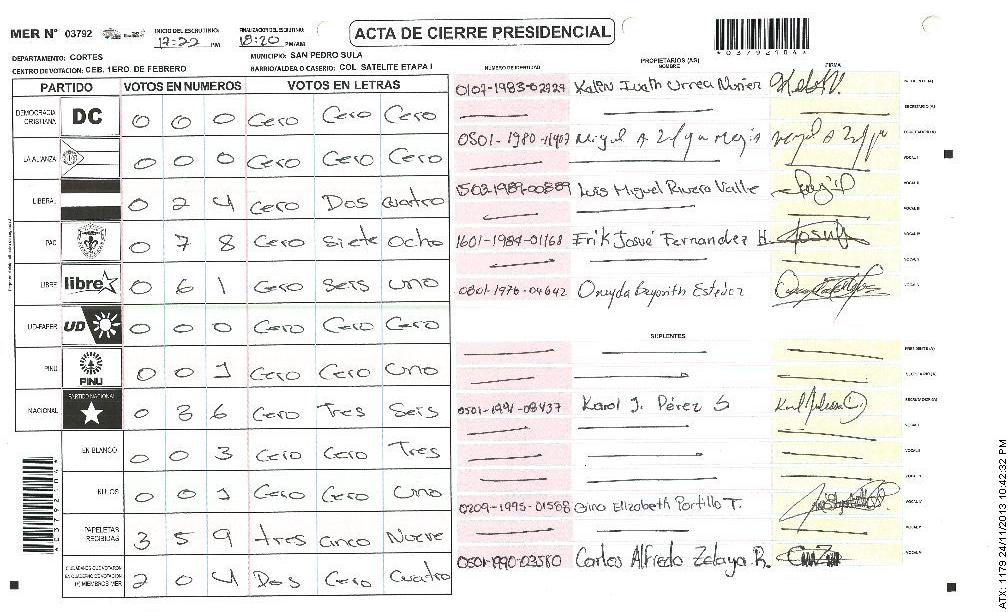 MER N° 03792
INICIO DEL ESCRUTINIO:
17:22 PM
FINALIZACION DEL ESCRUTINIO:
18:20 PM/AM
ACTA DE CIERRE PRESIDENCIAL
*03792104*
DEPARTAMENTO: CORTES
MUNICIPIO: SAN PEDRO SULA
CENTRO DE VOTACION: CEB. 1ERO. DE FEBRERO
BARRIO/ALDEA O CASERIO: COL SATELITE ETAPA I
PARTIDO VOTOS EN NUMEROS VOTOS EN LETRAS
DEMOCRACIA CRISTIANA DC 0 0 0 Cero Cero Cero
LA ALIANZA 0 0 0 Cero Cero Cero
LIBERAL 0 2 4 Cero Dos Cuatro
PAC 0 7 8 Cero Siete Ocho
LIBRE libre 0 6 1 Cero Seis Uno
UD-FAPER UD 0 0 0 Cero Cero Cero
PINU PINU 0 0 1 Cero Cero Uno
NACIONAL PARTIDO NACIONAL 0 3 6 Cero Tres Seis
EN BLANCO 0 0 3 Cero Cero Tres
NULOS 0 0 1 Cero Cero Uno
PAPELETAS RECIBIDAS 3 5 9 tres Cinco Nueve
2 0 4 Dos Cero Cuatro
PROPIETARIOS (AS)
NUMERO DE IDENTIDAD NOMBRE FIRMA
0107-1983-02727 Urrea
0501-1980-11407 Miguel A
1503-1989-00889 Luis Miguel Rivera Valle
1601-1984-01168 Erik Josué Fernandez H.
0801-1976-04642 Oneyda
SUPLENTES
PRESIDENTE (A)
SECRETARIO (A)
0501-1991-08437 Karol J. Pérez S
0209-1995-01588 Gina Elizabeth Portillo T.
0501-1990-03580 Carlos Alfredo Zelaya R.
ATX: 1179 24/11/2013 10:42:32 PM